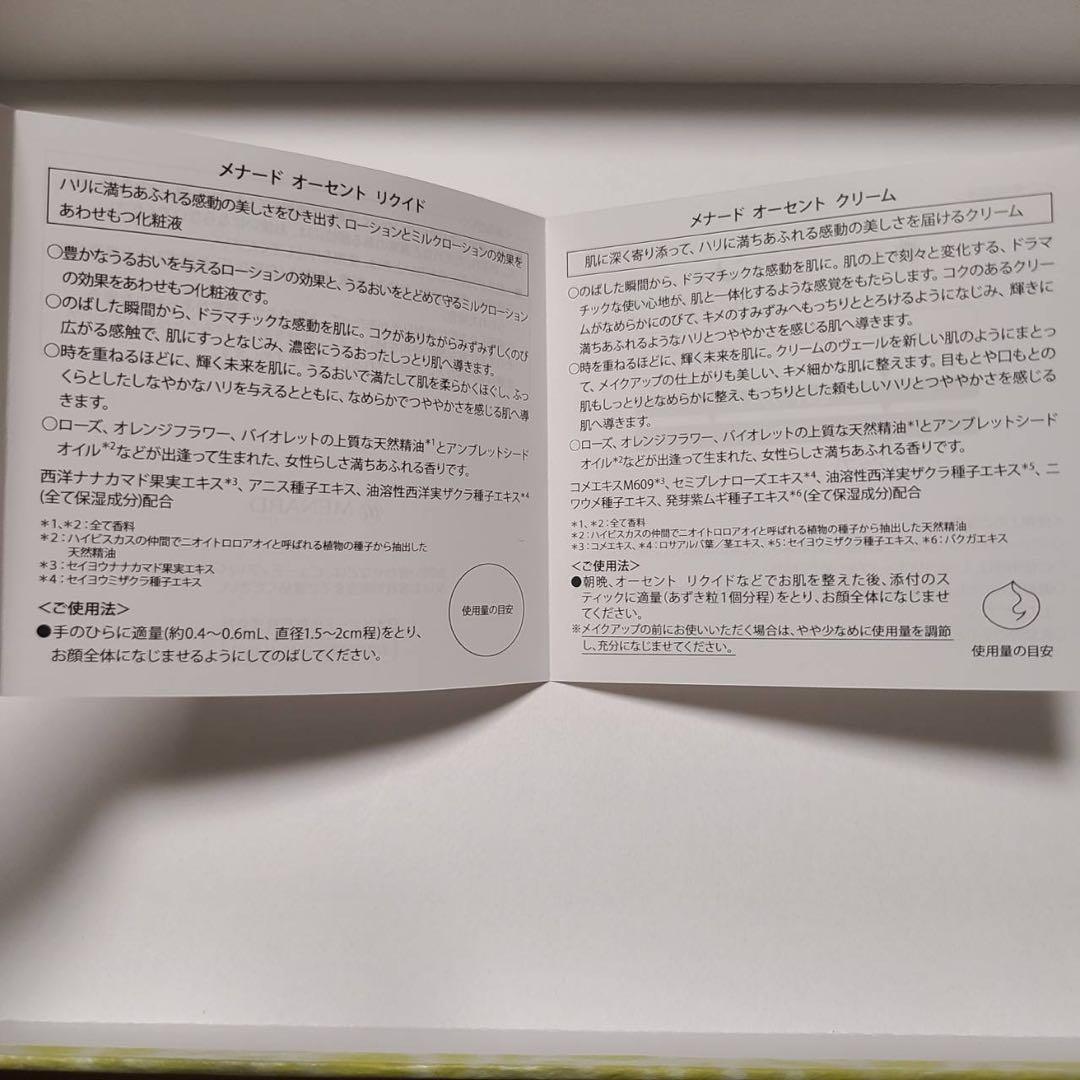 メナード オーセント リクイド
ハリに満ちあふれる感動の美しさをひき出す、ローションとミルクローションの効果を
あわせもつ化粧液
○豊かなうるおいを与えるローションの効果と、うるおいをとどめて守るミルクローション
の効果をあわせもつ化粧液です。
○のばした瞬間から、ドラマチックな感動を肌に。コクがありながらみずみずしくのび
広がる感触で、肌にすっとなじみ、濃密にうるおったしっとり肌へ導きます。
○時を重ねるほどに、輝く未来を肌に。うるおいで満たして肌を柔らかくほぐし、ふっ
くらとしたしなやかなハリを与えるとともに、なめらかでつややかさを感じる肌へ導
きます。
○ローズ、オレンジフラワー、バイオレットの上質な天然精油*1とアンブレットシード
オイル*2などが出逢って生まれた、女性らしさ満ちあふれる香りです。
西洋ナナカマド果実エキス*3、アニス種子エキス、油溶性西洋実ザクラ種子エキス*4
(全て保湿成分)配合
*1、*2：全て香料
*2：ハイビスカスの仲間でニオイトロロアオイと呼ばれる植物の種子から抽出した
天然精油
*3：セイヨウナナカマド果実エキス
*4：セイヨウミザクラ種子エキス
<ご使用法>
●手のひらに適量(約0.4〜0.6mL、直径1.5〜2cm程)をとり、
お顔全体になじませるようにしてのばしてください。
使用量の目安
メナード オーセント クリーム
肌に深く寄り添って、ハリに満ちあふれる感動の美しさを届けるクリーム
○のばした瞬間から、ドラマチックな感動を肌に。肌の上で刻々と変化する、ドラマ
チックな使い心地が、肌と一体化するような感覚をもたらします。コクのあるクリー
ムがなめらかにのびて、キメのすみずみへもっちりととろけるようになじみ、輝きに
満ちあふれるようなハリとつややかさを感じる肌へ導きます。
○時を重ねるほどに、輝く未来を肌に。クリームのヴェールを新しい肌のようにまとっ
て、メイクアップの仕上がりも美しい、キメ細かな肌に整えます。目もとや口もとの
肌もしっとりとなめらかに整え、もっちりとした頼もしいハリとつややかさを感じる
肌へ導きます。
○ローズ、オレンジフラワー、バイオレットの上質な天然精油*1とアンブレットシード
オイル*2などが出逢って生まれた、女性らしさ満ちあふれる香りです。
コメエキスM609*3、セミプレナローズエキス*4、油溶性西洋実ザクラ種子エキス*5、ニ
ワウメ種子エキス、発芽紫ムギ種子エキス*6(全て保湿成分)配合
*1、*2：全て香料
*2：ハイビスカスの仲間でニオイトロロアオイと呼ばれる植物の種子から抽出した天然精油
*3：コメエキス、*4：ロサアルバ葉／茎エキス、*5：セイヨウミザクラ種子エキス、*6：バクガエキス
<ご使用法>
●朝晩、オーセント リクイドなどでお肌を整えた後、添付のス
ティックに適量(あずき粒1個分程)をとり、お顔全体になじませ
てください。
※メイクアップの前にお使いいただく場合は、やや少なめに使用量を調節
し、充分になじませてください。
使用量の目安